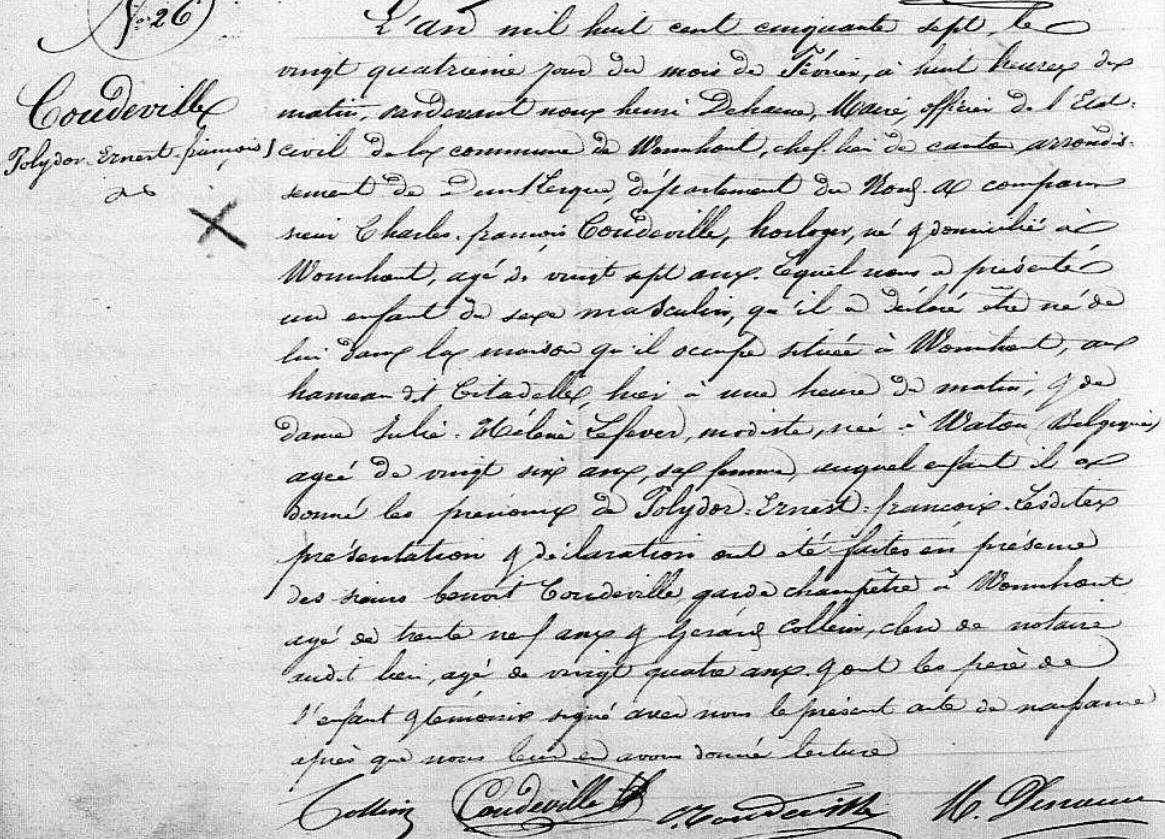 N.° 26
Coudeville
Polydor-Ernest-françois
L'an mil huit cent cinquante sept, le
vingt quatrieme jour du mois de Février, à huit heures du
matin, pardevant nous henri Dehaene, Maire, officier de l'Etat-
civil de la commune de Wormhout, chef lieu de canton, arrondis-
sement de Dunkerque, département du Nord. a comparu
sieur Charles-françois Coudeville, horloger, né & domicilié à
Wormhout, agé de vingt sept ans. Lequel nous a présenté
un enfant du sexe masculin, qu'il a déclaré être né de
lui dans la maison qu'il occupe située à Wormhout, au
hameau dit Citadelle, hier à une heure du matin, & de
dame Julie-Hélène Lefever, modiste, née à Watou (Belgique)
agée de vingt six ans, sa femme, auquel enfant il a
donné les prénoms de Polydor-Ernest-françois. Lesdites
présentation & déclaration ont été faites en présence
des sieurs benoit Coudeville, garde champêtre à Wormhout
agé de trente neuf ans & Gérard Collein, clerc de notaire
audit lieu, agé de vingt quatre ans. & ont les père de
l'enfant & témoins signé avec nous le présent acte de naissance
après que nous leur en avons donné lecture
Collein Coudeville Coudeville H. Dehaene